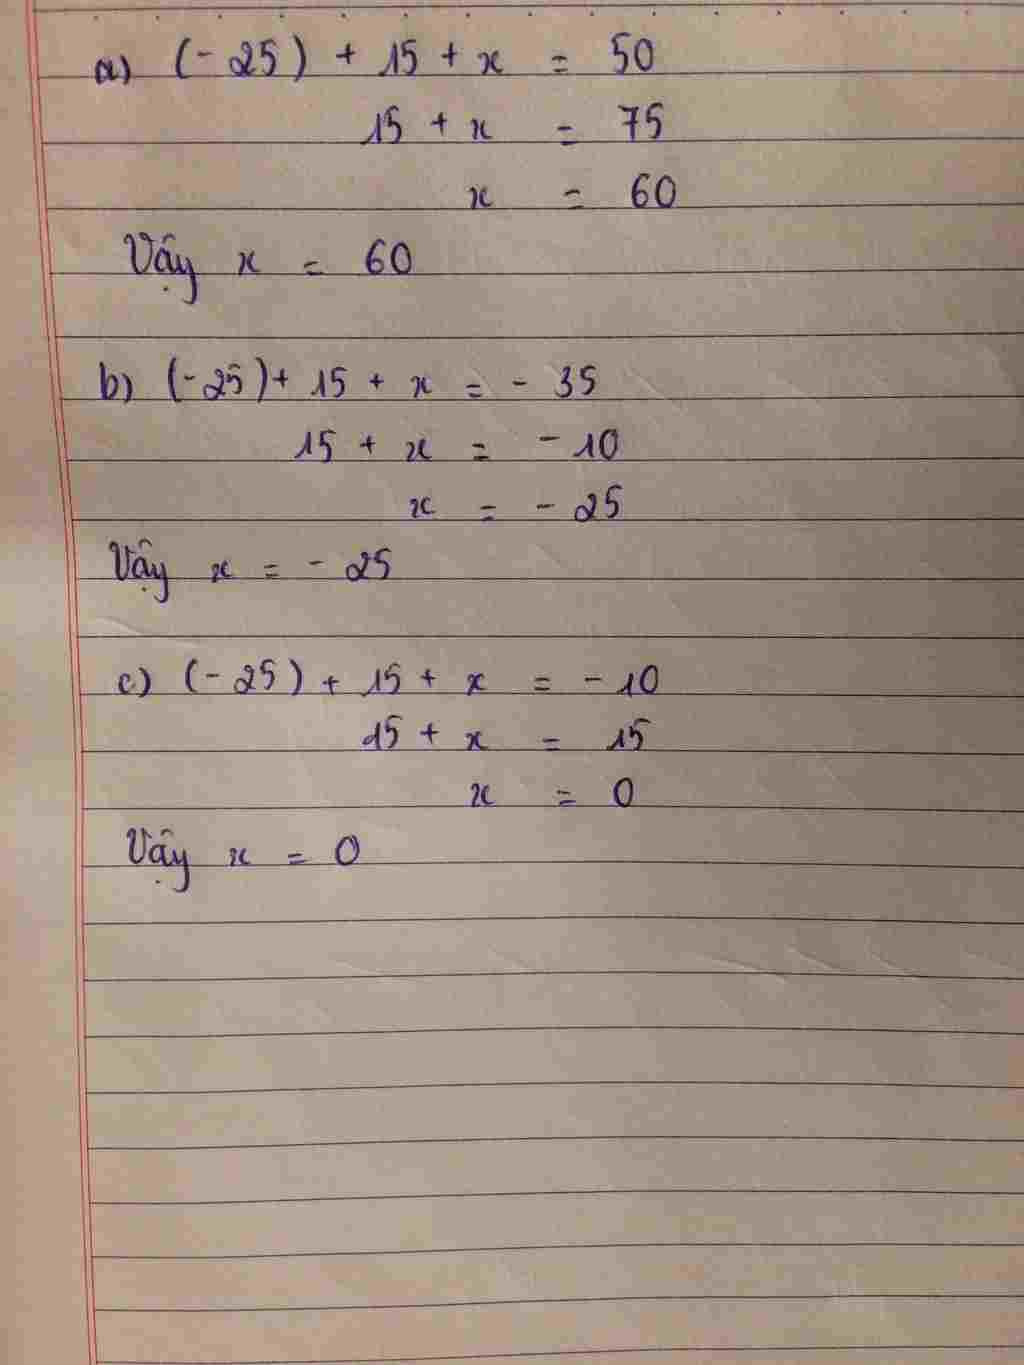 a) (-25) + 15 + x = 50
15 + x = 75
x = 60
Vậy x = 60
b) (-25) + 15 + x = - 35
15 + x = - 10
x = - 25
Vậy x = - 25
c) (-25) + 15 + x = - 10
15 + x = 15
x = 0
Vậy x = 0